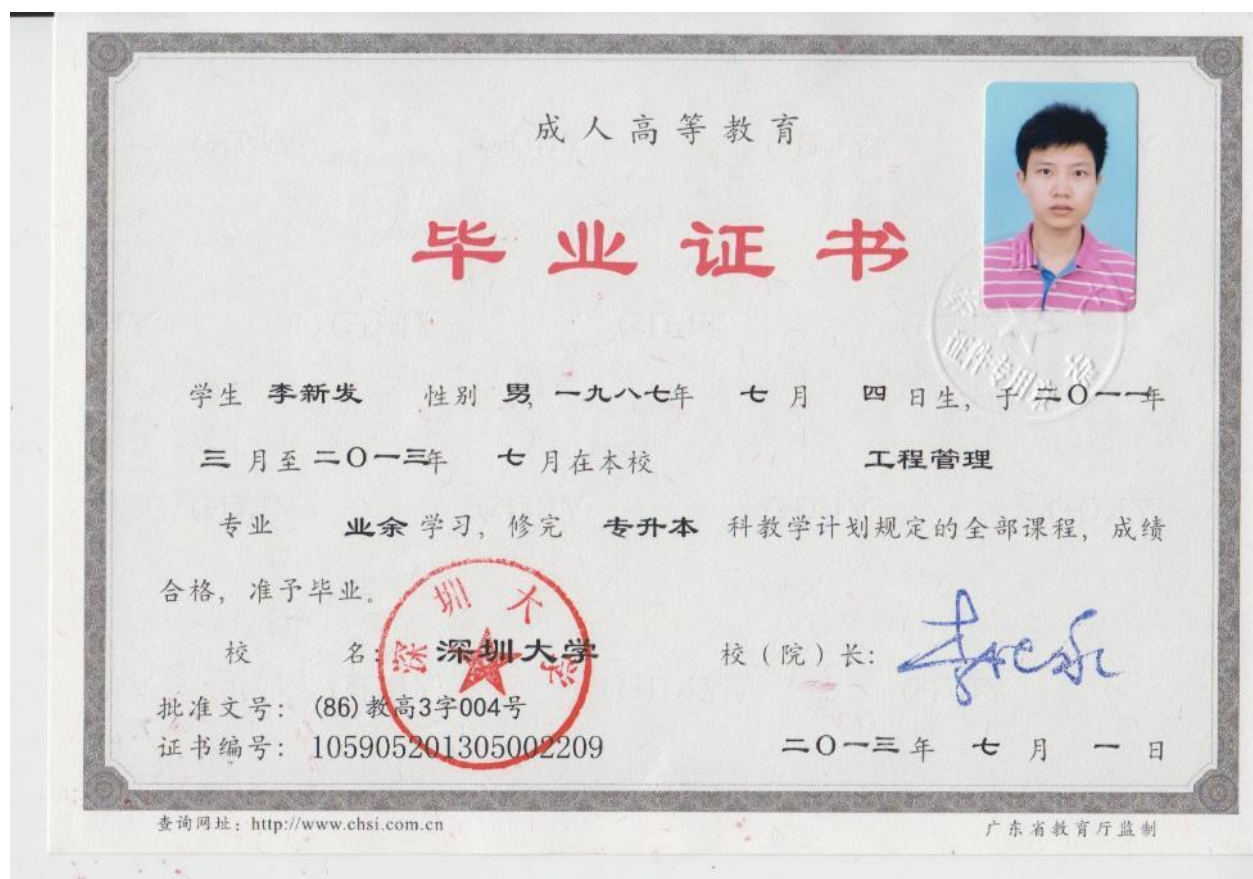 成人高等教育
毕业证书
学生 李新发 性别 男, 一九八七年 七月 四日生, 于二O一一年
三月至二O一三年 七月在本校 工程管理
专业 业余学习, 修完 专升本 科教学计划规定的全部课程, 成绩
合格, 准予毕业。
校 名: 深圳大学 校(院)长:
批准文号: (86)教高3字004号
证书编号: 105905201305002209 二O一三年 七月 一日
查询网址: http://www.chsi.com.cn 广东省教育厅监制
深圳大学
证件专用章